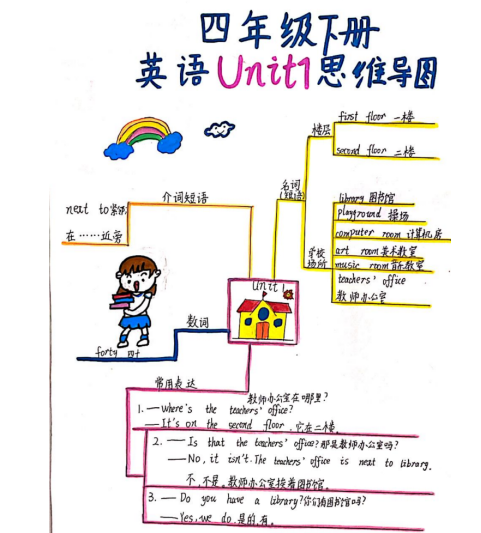 四年级下册
英语Unit1思维导图
first floor 一楼
楼层
second floor 二楼
名词
(短语)
介词短语
next to 紧邻
在……近旁
library 图书馆
playground 操场
computer room 计算机房
学校
场所
art room 美术教室
music room 音乐教室
teachers' office
教师办公室
Unit 1
数词
forty 四十
常用表达
教师办公室在哪里?
1. —Where's the teachers' office?
—It's on the second floor. 它在二楼.
2. —Is that the teachers' office? 那是教师办公室吗?
—No, it isn't. The teachers' office is next to library.
不,不是。教师办公室挨着图书馆.
3. —Do you have a library? 你们有图书馆吗?
—Yes, we do. 是的,有。